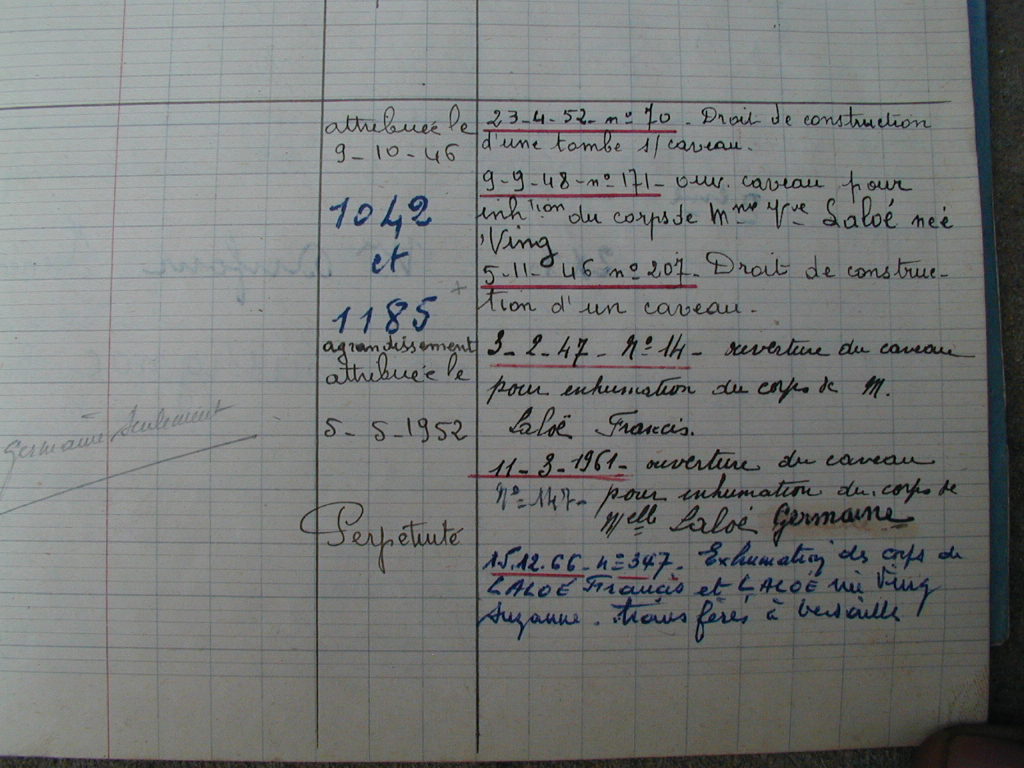 attribuée le
9-10-46
1042
et
1185
agrandissement
attribuée le
5-5-1952
Perpétuité
Germaine Seulement
23-4-52-nº 70. Droit de construction
d'une tombe s/ caveau.
9-9-48-nº171- ouv. caveau pour
inh^tion du corps de Mme Vve Laloé neé
Ving
5-11-46 nº207- Droit de construc-
tion d'un caveau.
3-2-47- Nº14- ouverture du caveau
pour inhumation du corps de M.
Laloë Francis.
11-3-1961- ouverture du caveau
Nº=147- pour inhumation du corps de
Melle Laloé Germaine
15.12.66-n=347. Exhumation des corps de
LALOË Francis et LALOË née Ving
Suzanne. transférés à Versailles